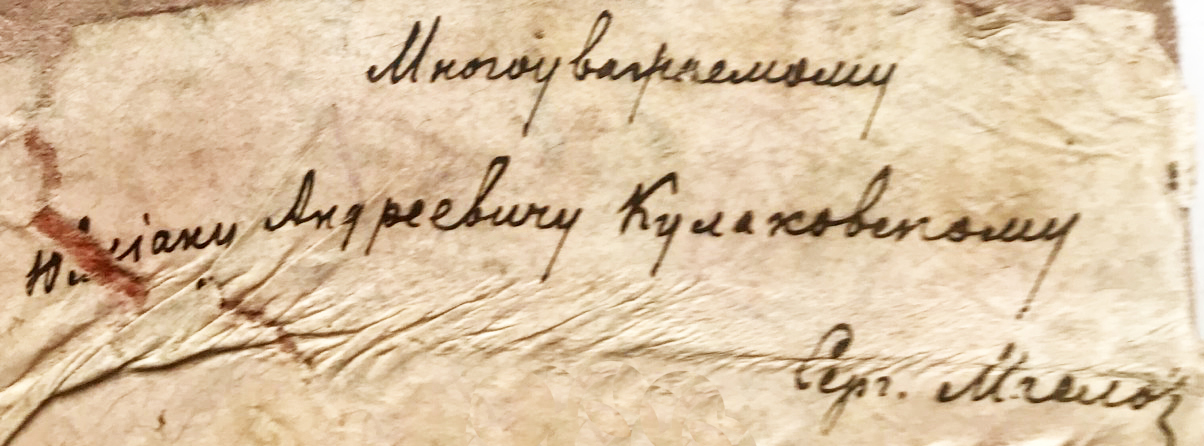 Многоуважаемому
Юліану Андреевичу Кулаковскому
Серг.